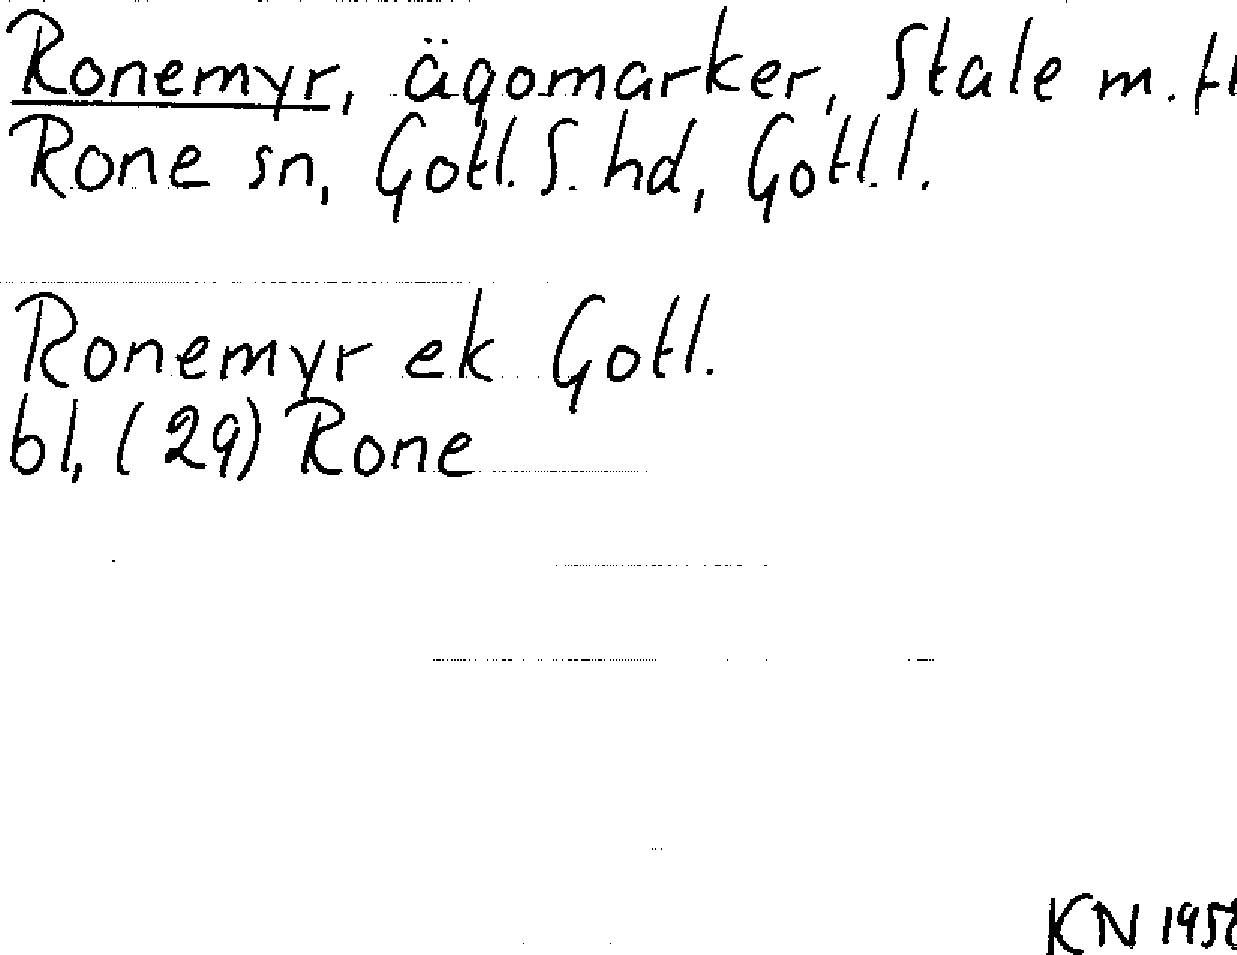 Ronemyr, ägomarker, Stale m. fl
Rone sn, Gotl. S. hd, Gotl. l.
Ronemyr ek Gotl.
bl, (29) Rone
KN